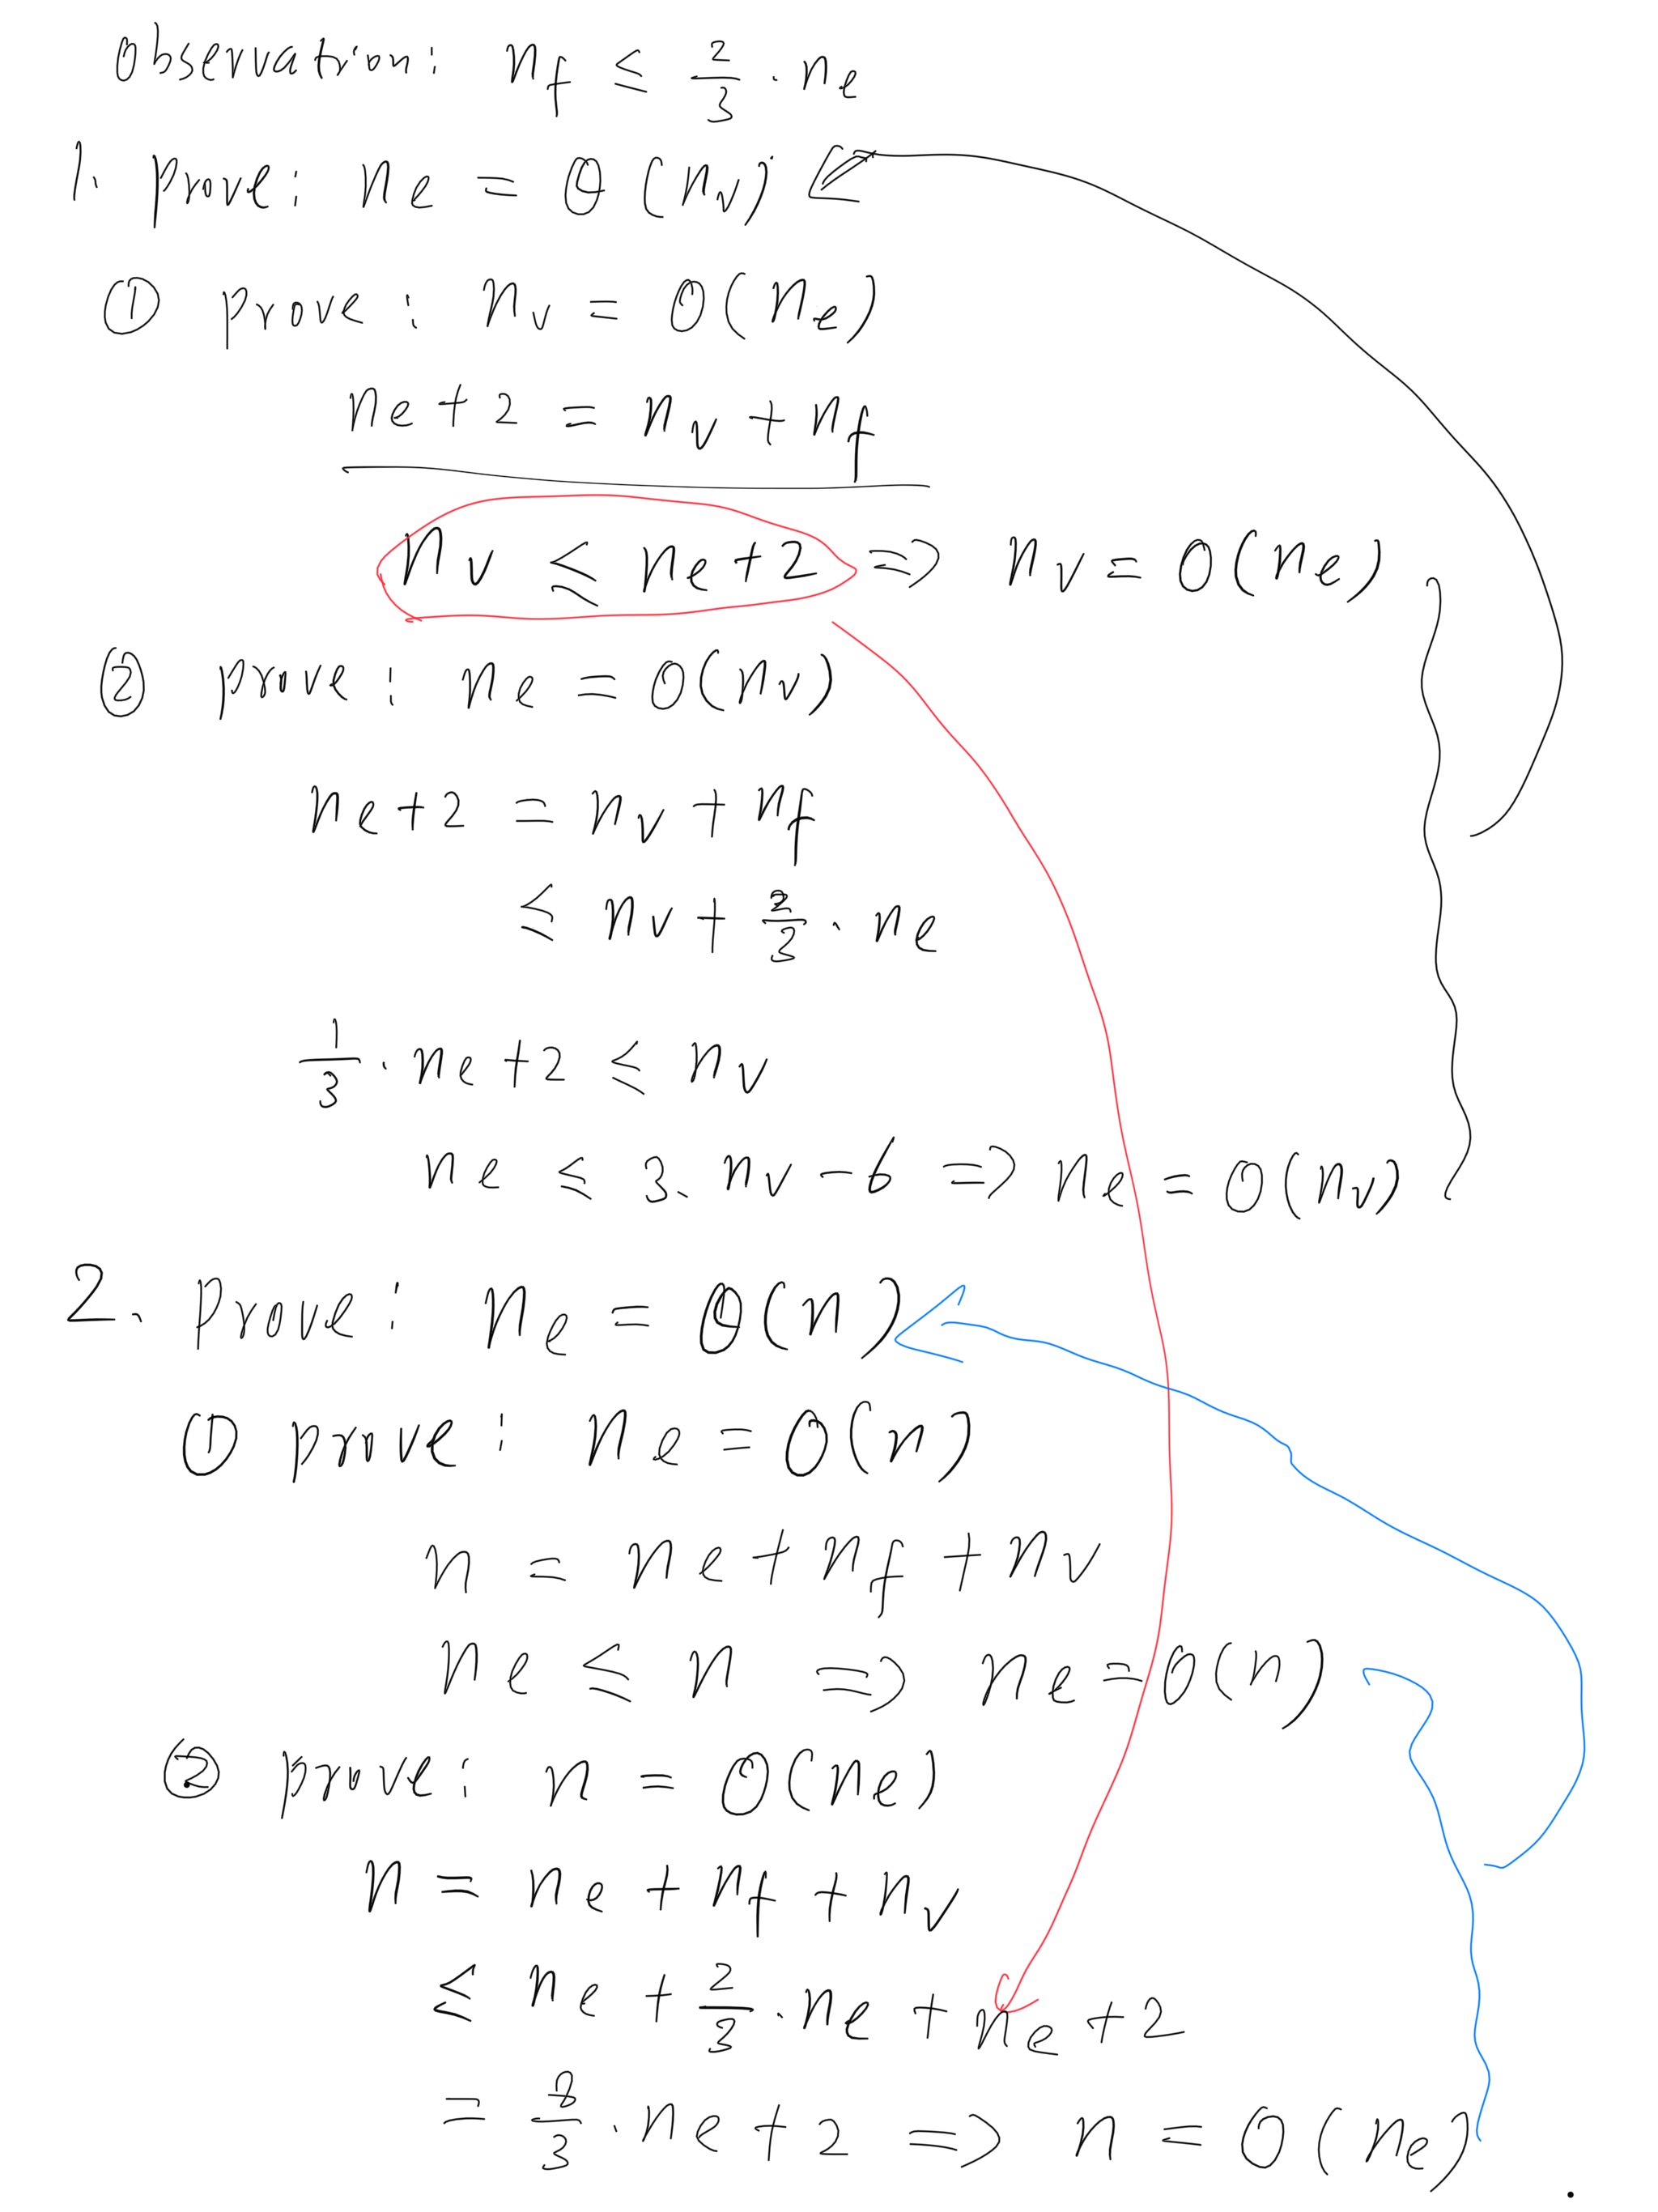 Observation: n_f ≤ 2/3 · n_e
1. prove: n_e = Θ(n_v)
① prove: n_v = O(n_e)
n_e + 2 = n_v + n_f
n_v ≤ n_e + 2 ⇒ n_v = O(n_e)
② prove: n_e = O(n_v)
n_e + 2 = n_v + n_f
≤ n_v + 2/3 · n_e
1/3 · n_e + 2 ≤ n_v
n_e ≤ 3 · n_v - 6 ⇒ n_e = O(n_v)
2. Prove: n_e = Θ(n)
① prove: n_e = O(n)
n = n_e + n_f + n_v
n_e ≤ n ⇒ n_e = O(n)
② prove: n = O(n_e)
n = n_e + n_f + n_v
≤ n_e + 2/3 · n_e + n_e + 2
= 8/3 · n_e + 2 ⇒ n = O(n_e)